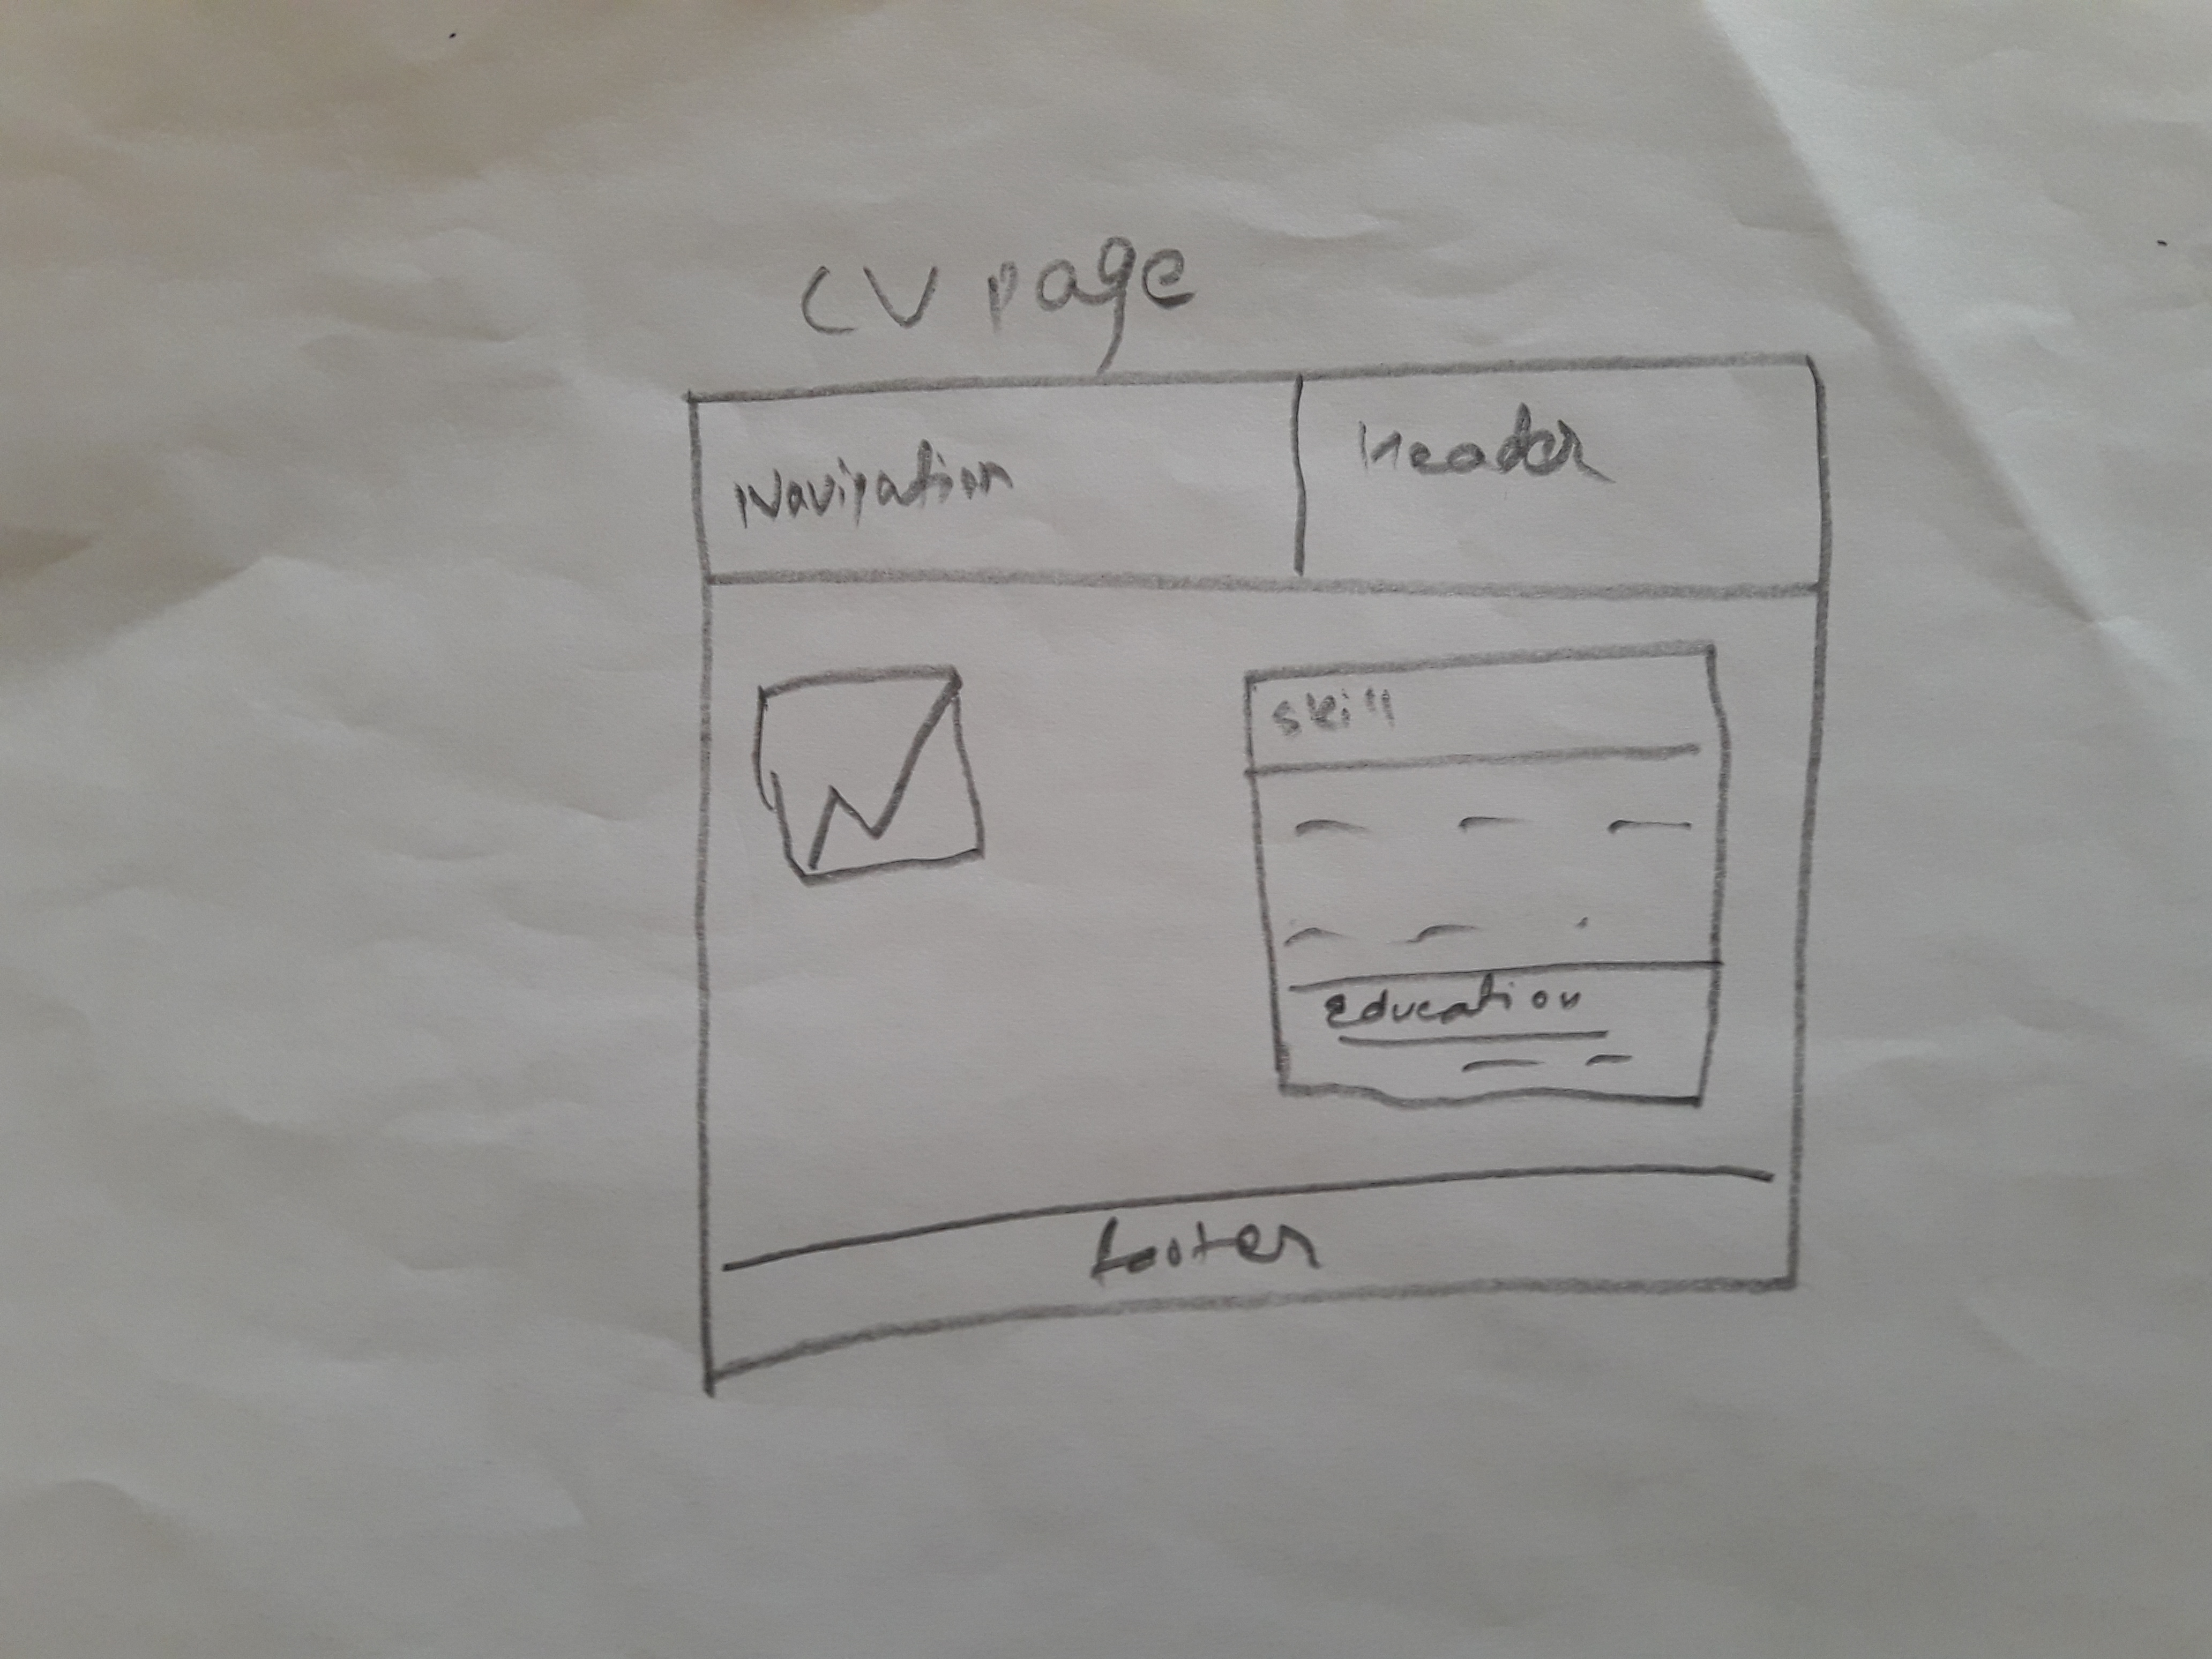 CV page
Navigation
Header
Skill
Education
footer